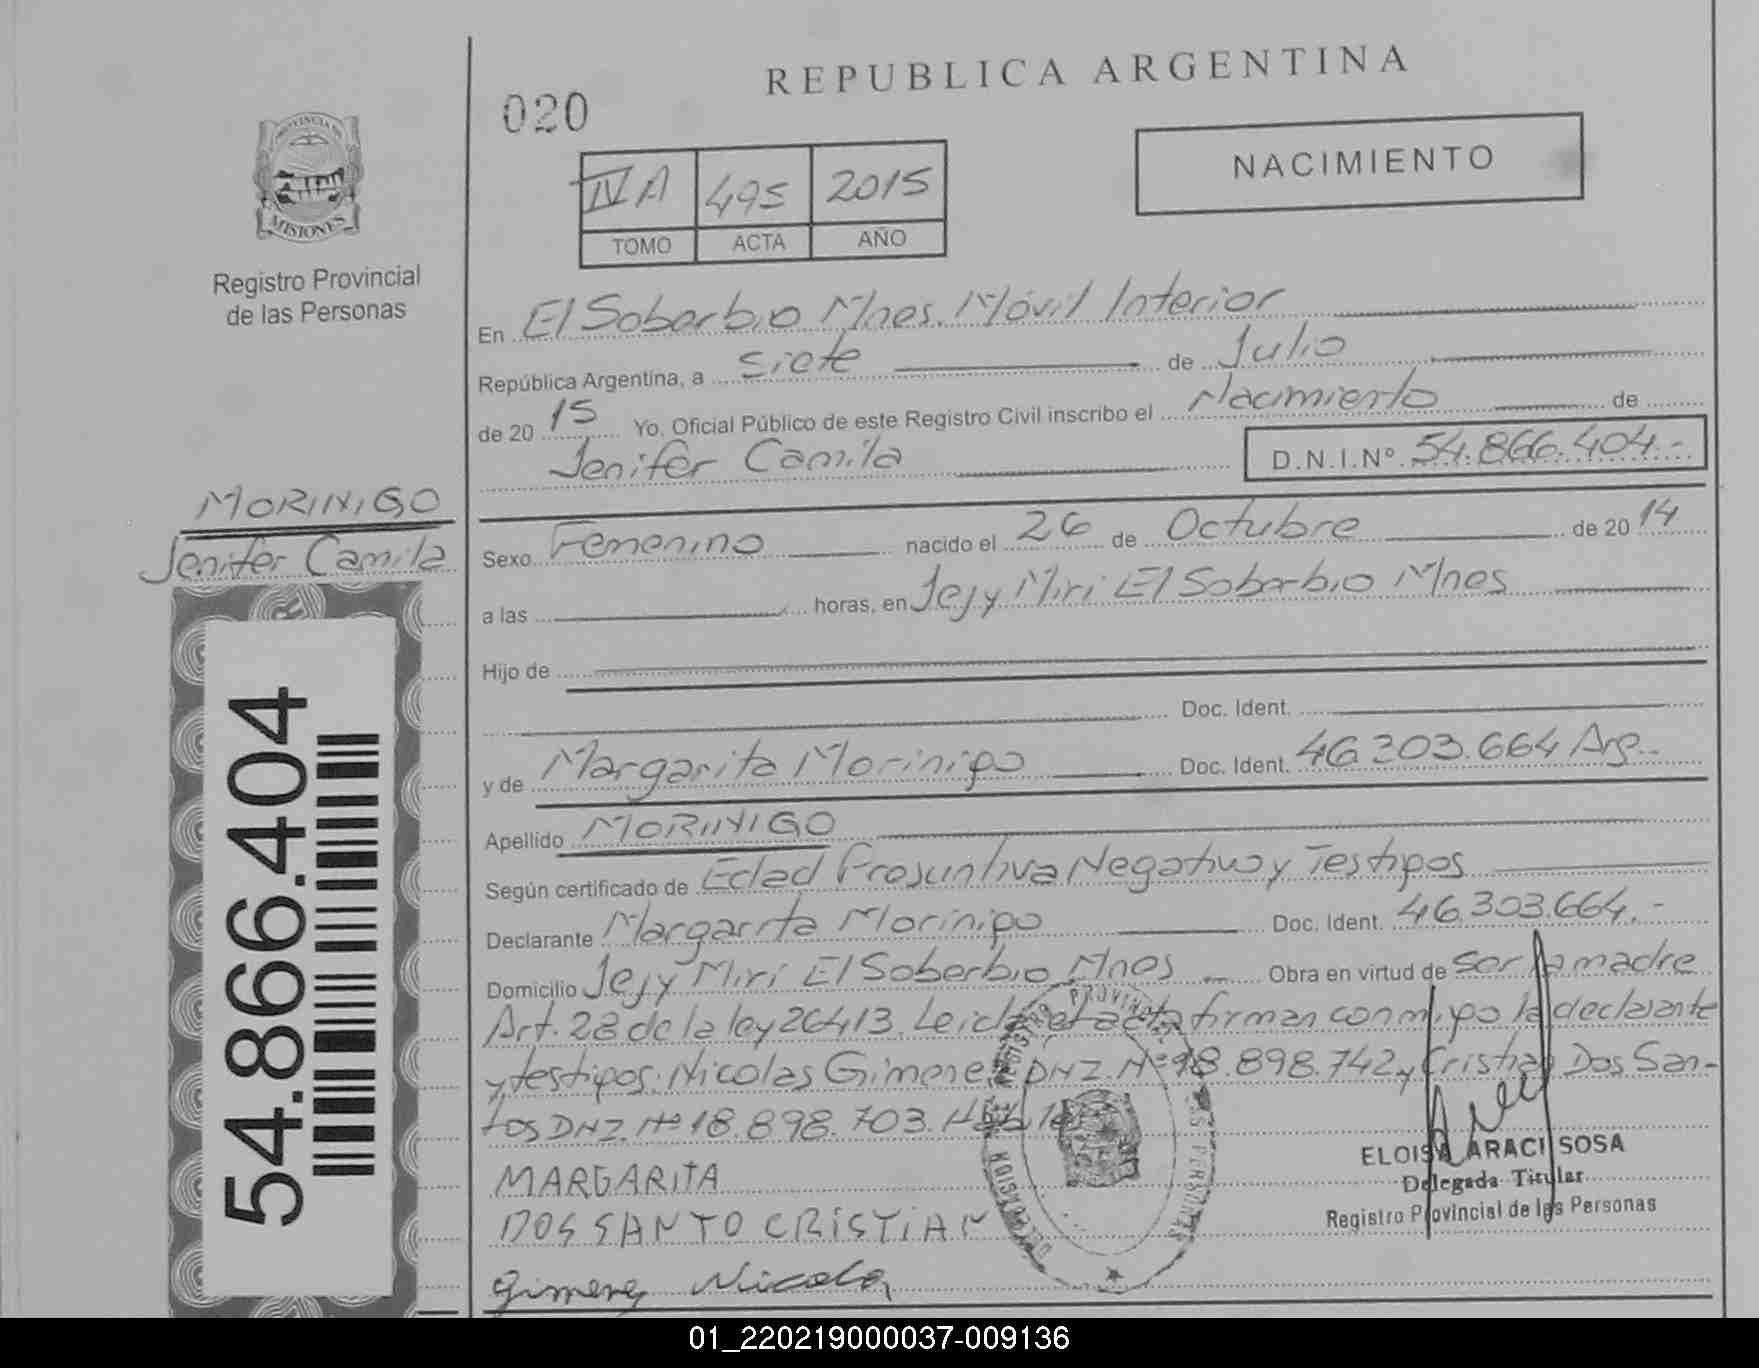 REPUBLICA ARGENTINA
020
NACIMIENTO
IV A 495 2015
TOMO ACTA AÑO
PROVINCIA DE
MISIONES
Registro Provincial
de las Personas
En El Soberbio Mnes. Móvil Interior
República Argentina, a siete de Julio
de 20 15 Yo, Oficial Público de este Registro Civil inscribo el Nacimiento de
Jenifer Camila D.N.I.Nº 54.866.404.-
MORINIGO
Jenifer Camila
Sexo Femenino nacido el 26 de Octubre de 20 14
a las horas, en Jejy Miri El Soberbio Mnes
Hijo de
Doc. Ident.
y de Margarita Morinigo Doc. Ident. 46.303.664 Arg.-
Apellido MORINIGO
Según certificado de Edad Presuntiva Negativo y Testigos
Declarante Margarita Morinigo Doc. Ident. 46.303.664.-
Domicilio Jejy Miri El Soberbio Mnes Obra en virtud de ser la madre
Art. 28 de la ley 26413. Leida el acta firman conmigo la declarante
y testigos: Nicolas Gimenez DNI Nº 18.898.742 y Cristian Dos San-
tos DNI. Nº 18.898.703.
MARGARITA
DOS SANTO CRISTIAN
Gimenez Nicolas
ELOISA ARACI SOSA
Delegada Titular
Registro Provincial de las Personas
54.866.404
01_220219000037-009136